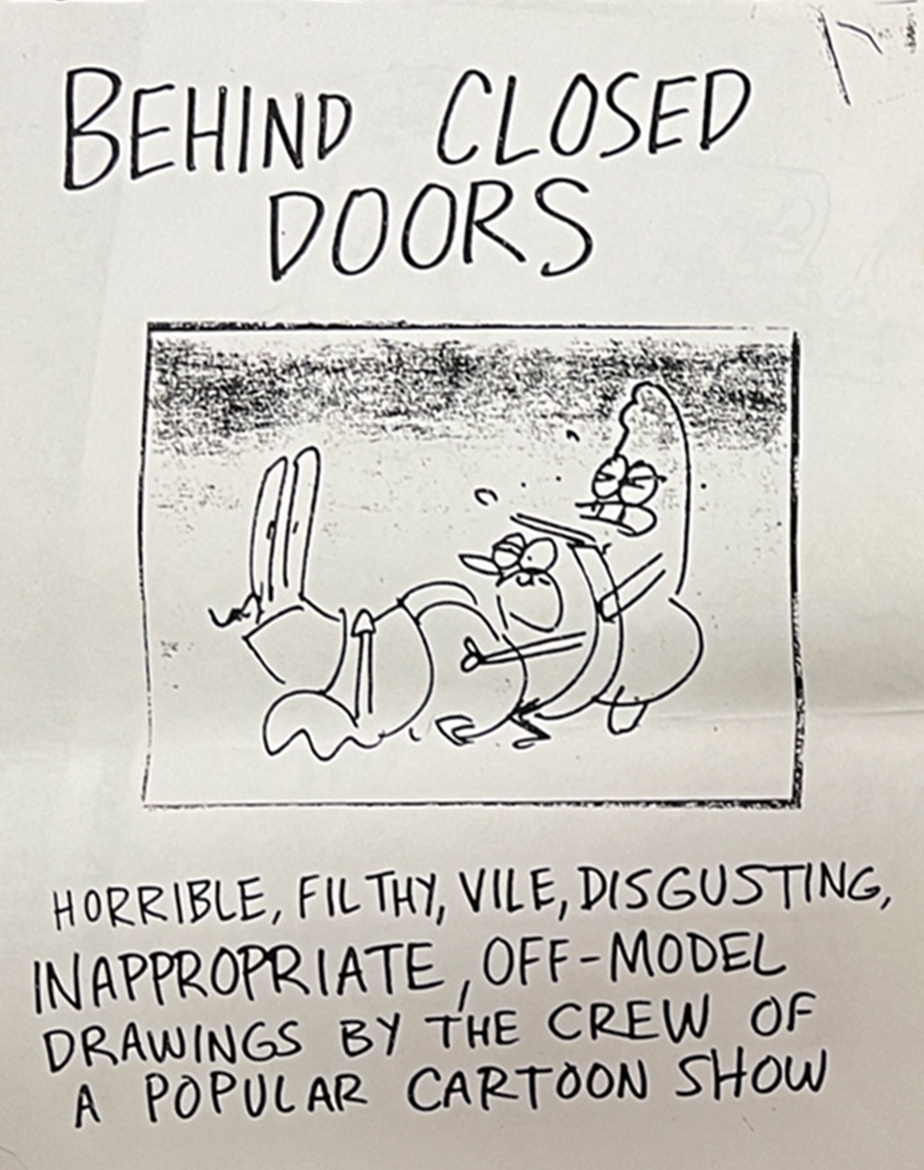 BEHIND CLOSED
DOORS
HORRIBLE, FILTHY, VILE, DISGUSTING,
INAPPROPRIATE, OFF-MODEL
DRAWINGS BY THE CREW OF
A POPULAR CARTOON SHOW